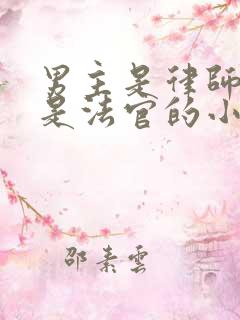 男主是律師
是法官的小
邵素雲